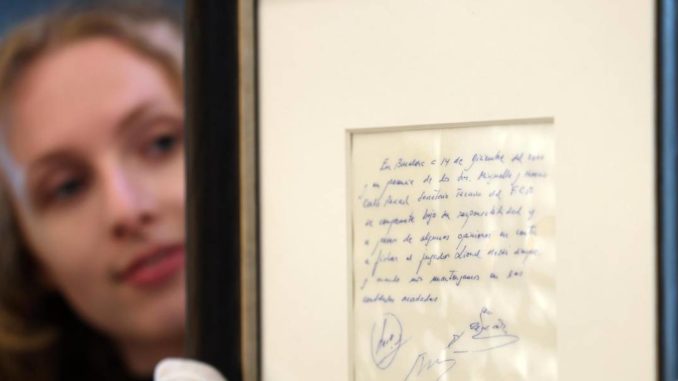 En Barcelona a 14 de diciembre del 2000
y en presencia de los Sres. Minguella y Horacio
Carles Rexach Secretario Técnico del F.C.B
se compromete bajo su responsabilidad y
a pesar de algunas opiniones en contra
a fichar al jugador Lionel Messi siempre
y cuando nos mantengamos en las
cantidades acordadas